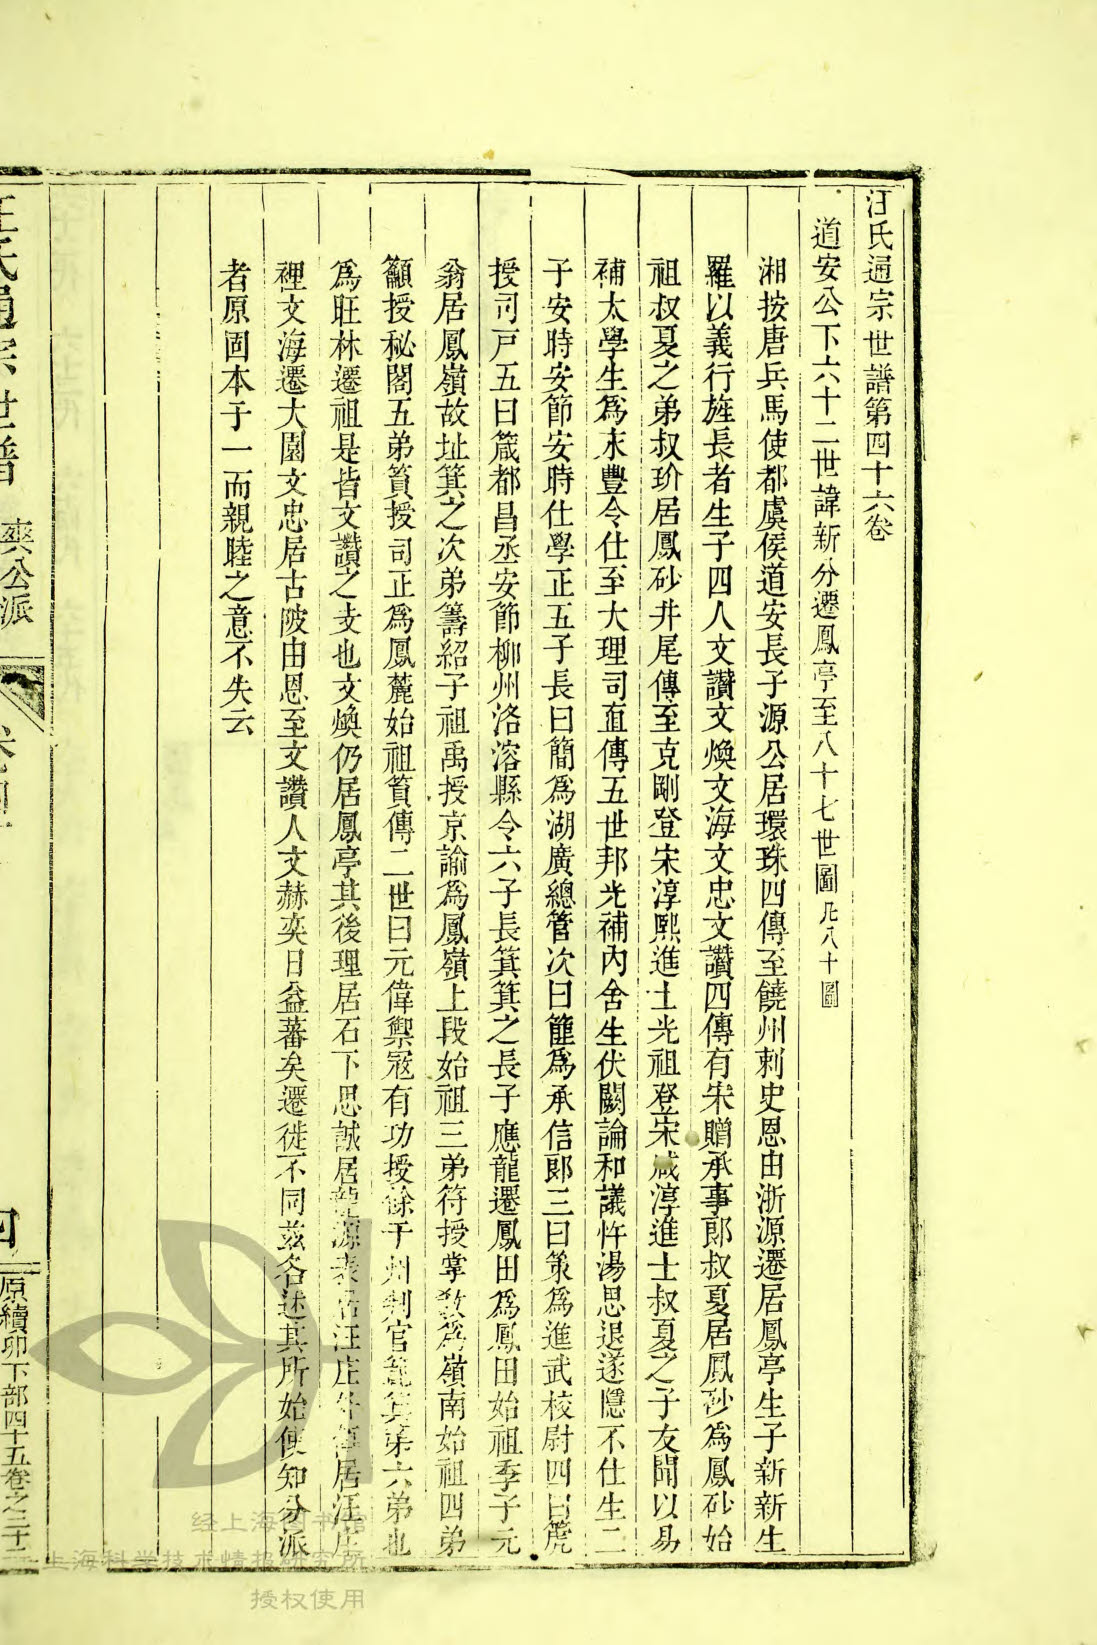 汪氏通宗世譜第四十六卷
道安公下六十二世諱新分遷鳳亭至八十七世圖凡八十圖
湘按唐兵馬使都虞侯道安長子源公居環珠四傳至饒州刺史恩由浙源遷居鳳亭生子新新生
羅以義行旌長者生子四人文讚文煥文海文忠文讚四傳有宋贈承事郎叔夏居鳳砂為鳳砂始
祖叔夏之弟叔玠居鳳砂井尾傳至克剛登宋淳熙進士光祖登宋咸淳進士叔夏之子友聞以易
補太學生為永豐令仕至大理司直傳五世邦光補內舍生伏闕論和議忤湯思退遂隱不仕生二
子安時安節安時仕學正五子長曰簡為湖廣總管次曰篚為承信郎三曰策為進武校尉四曰箎
授司戸五曰箴都昌丞安節柳州洛溶縣令六子長箕箕之長子應龍遷鳳田為鳳田始祖季子元
翁居鳳嶺故址箕之次弟籌紹子祖禹授京諭為鳳嶺上段始祖三弟符授掌教為嶺南始祖四弟
籲授秘閣五弟篔授司正為鳳麓始祖篔傳二世曰元偉禦寇有功授餘干州判官箕弟六弟也
為旺林遷祖是皆文讚之支也文煥仍居鳳亭其後理居石下思誠居龍源表居汪庄居汪庄
裡文海遷大園文忠居古陂由恩至文讚人文赫奕日益蕃矣遷徙不同茲各述其所始使知分派
者原固本于一而親睦之意不失云
汪氏通宗世譜 爽公派 四 原續卯下部四十五卷之三十二
经上海图书馆
上海科学技术情报研究所
授权使用